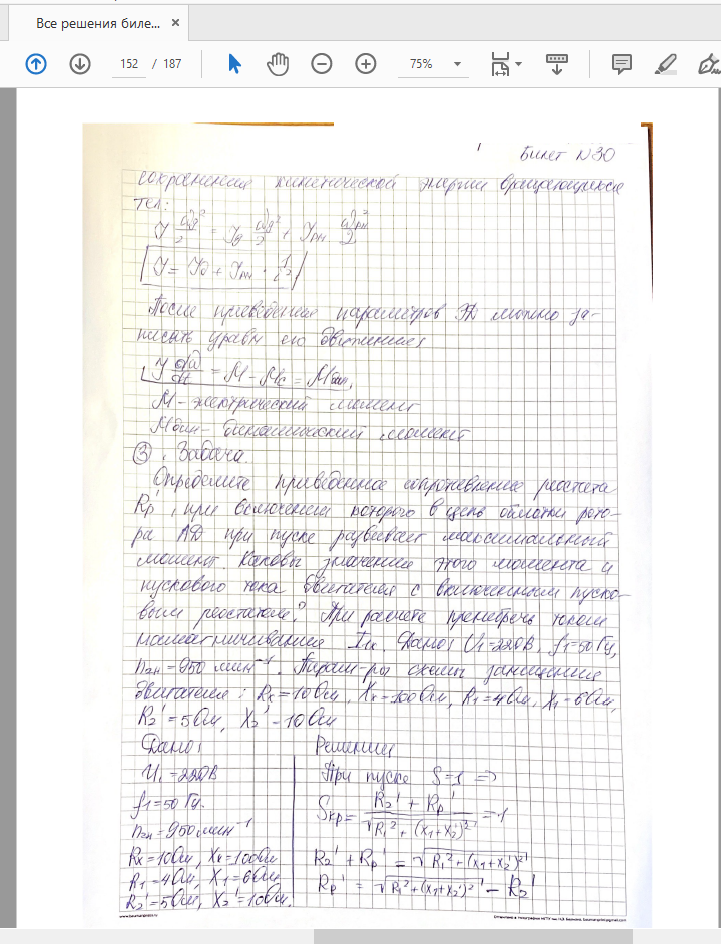 Все решения биле...
152 / 187
75%
Билет N30
сохранения кинетической энергии вращающихся
тел:
J ωд²/2 = Jд ωд²/2 + Jрм ωрм²/2
J = Jд + Jрм · 1/i²
После приведения параметров ЭД можно за-
писать уравн его движения
J dω/dt = M - Mc = Mдин.
M - электрический момент
Mдин - динамический момент
3. Задача.
Определите приведенное сопротивление реостата
Rp', при включении которого в цепь обмотки рото-
ра АД при пуске развивает максимальный
момент. Каковы значения этого момента и
пускового тока двигателя с включенным пуско-
вым реостатом? При расчете пренебречь током
намагничивания Дано: U1=220В, f1=50Гц,
n2н=950 мин⁻¹. Парам-ры схемы замещения
двигателя: Rк=10Ом, Xк=100Ом, R1=4Ом, X1=6Ом,
R2'=5Ом, X2'=10Ом
Дано: Решение
U1=220В При пуске S=1 =>
f1=50Гц. Sкр= (R2' + Rp')/√(R1²+(X1+X2')²) =1
n2н=950мин⁻¹
Rк=10Ом, Xк=100Ом R2'+Rp' = √(R1²+(X1+X2')²)
R1=4Ом, X1=6Ом Rp' = √(R1²+(X1+X2')²) - R2'
R2'=5Ом, X2'=10Ом.